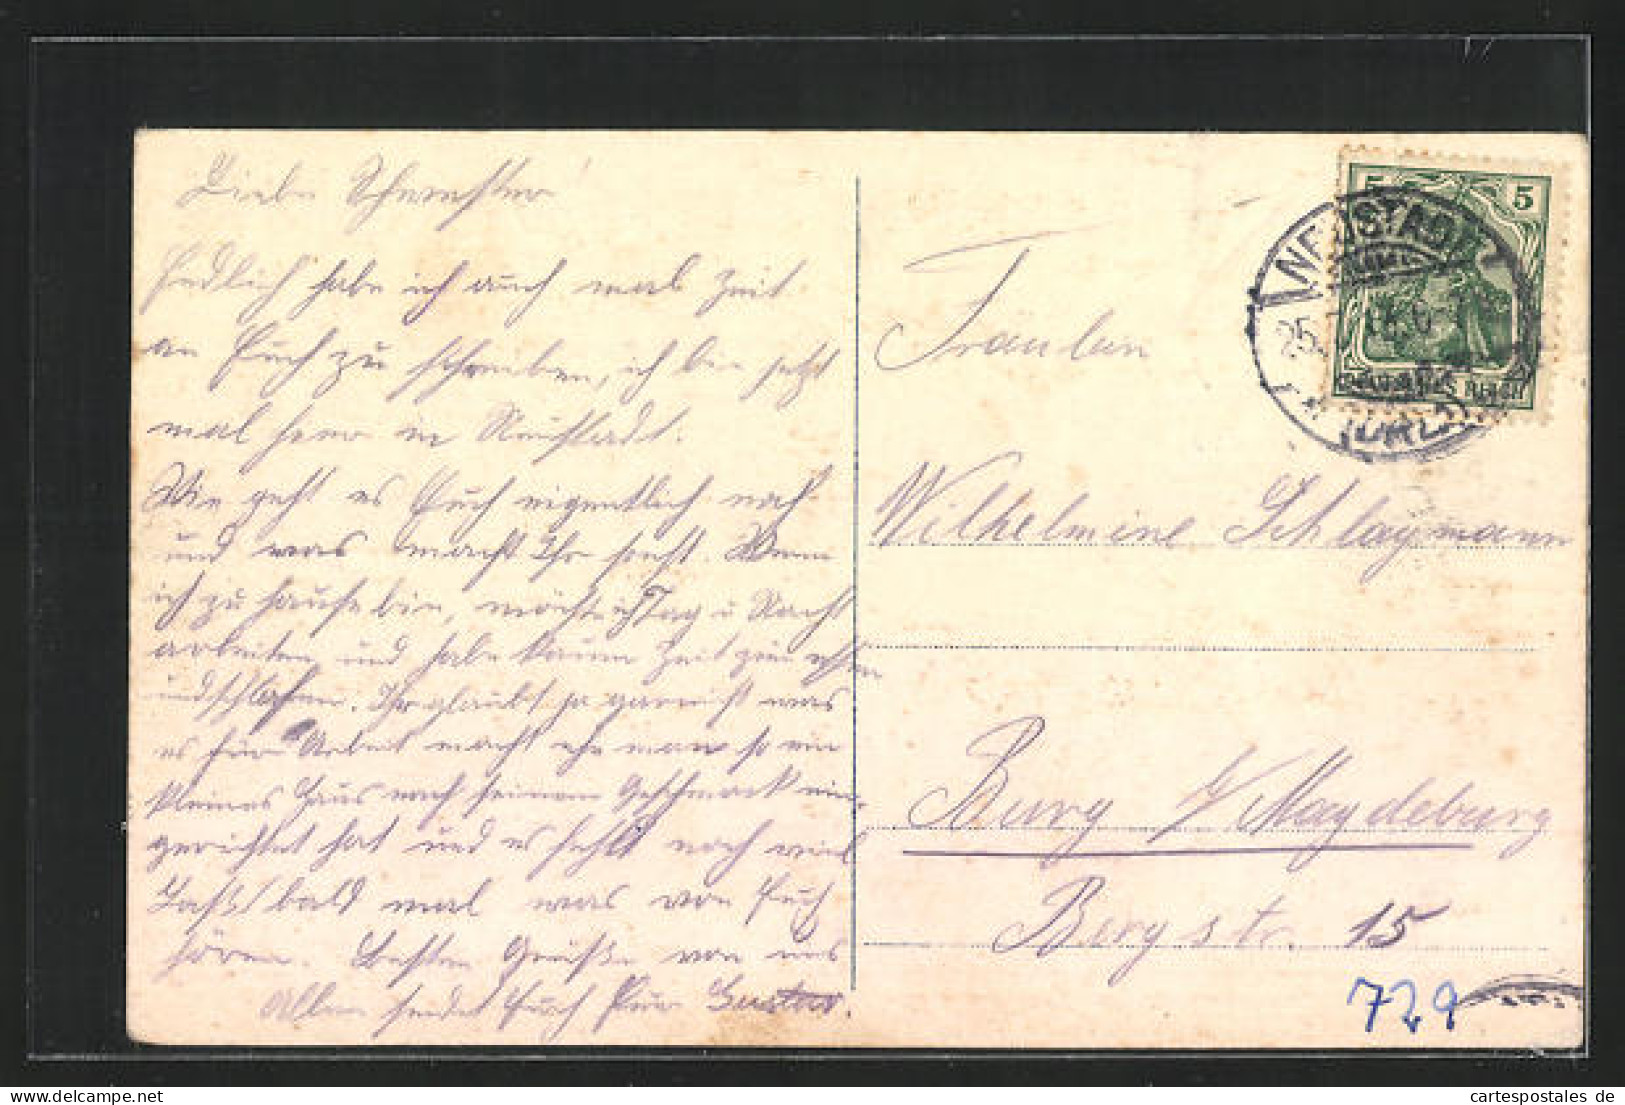 Liebe Schwester!
Endlich habe ich auch mal Zeit
an Euch zu schreiben, ich bin jetzt
mal hier in Neustadt.
Wie geht es Euch eigentlich noch
und was macht Ihr sonst. Wenn
ich zu Hause bin, möchte ich Tag u Nacht
arbeiten und habe kaum Zeit zum essen
und schlafen. Ihr glaubt ja garnicht was
es für Arbeit macht ehe man so ein
kleines Haus nach seinem Geschmack ein-
gerichtet hat und es fehlt noch viel
Laßt bald mal was von Euch
hören. Besten Grüße von uns
Allen sendet Euch Euer Gustav.
NEUSTADT
25.
5 5
DEUTSCHES REICH
Fräulein
Wilhelmine Schlaymann
Burg b/Magdeburg
Bergstr. 15
729
www.cartespostales.de